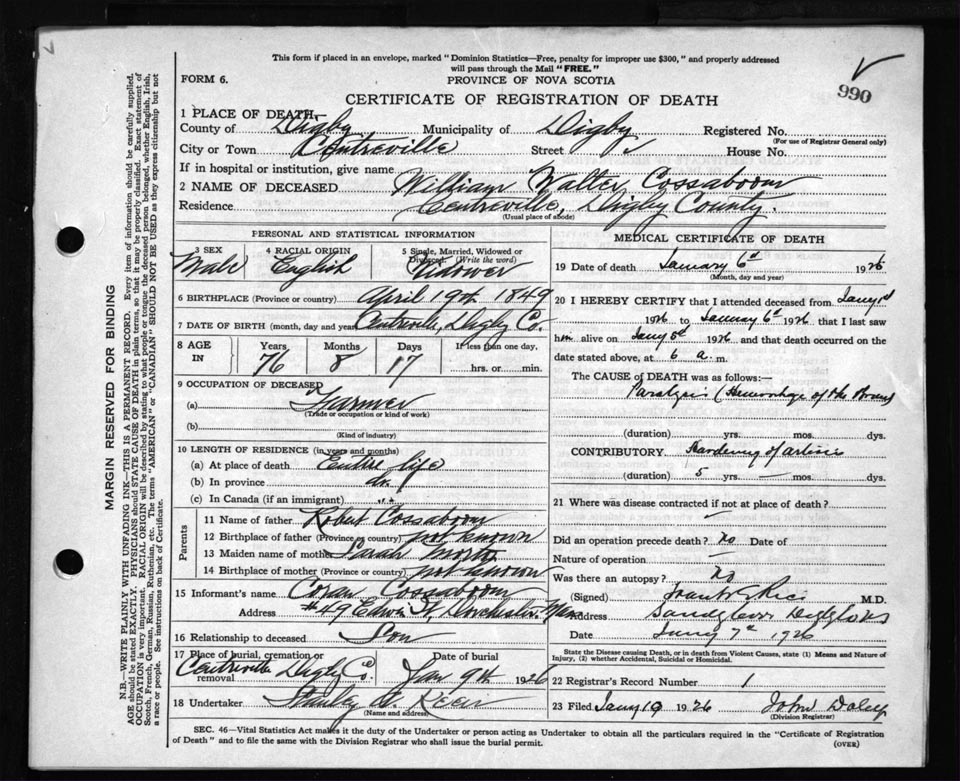 This form if placed in an envelope, marked "Dominion Statistics—Free, penalty for improper use $300," and properly addressed
will pass through the Mail "FREE."
FORM 6.
PROVINCE OF NOVA SCOTIA
990
CERTIFICATE OF REGISTRATION OF DEATH
1 PLACE OF DEATH—
County of Digby Municipality of Digby Registered No.
(For use of Registrar General only)
City or Town Centreville Street House No.
If in hospital or institution, give name
2 NAME OF DECEASED William Walter Cossaboom
Residence Centreville, Digby County.
(Usual place of abode)
PERSONAL AND STATISTICAL INFORMATION
3 SEX 4 RACIAL ORIGIN 5 Single, Married, Widowed or Divorced. (Write the word)
Male English Widower
6 BIRTHPLACE (Province or country) April 19th 1849
7 DATE OF BIRTH (month, day and year) Centreville, Digby Co.
8 AGE IN Years Months Days If less than one day,
76 8 17 hrs. or min.
9 OCCUPATION OF DECEASED
(a) Farmer
(Trade or occupation or kind of work)
(b)
(Kind of industry)
10 LENGTH OF RESIDENCE (in years and months)
(a) At place of death Entire life
(b) In province do.
(c) In Canada (if an immigrant) " "
Parents
11 Name of father Robert Cossaboom
12 Birthplace of father (Province or country) not known
13 Maiden name of mother Sarah
14 Birthplace of mother (Province or country) not known
15 Informant's name Cossaboom
Address #49 St, Dorchester, Mass
16 Relationship to deceased Son
17 Place of burial, cremation or removal Date of burial
Centreville Digby Co. Jan 9th 1926
18 Undertaker Stanley
(Name and address)
MEDICAL CERTIFICATE OF DEATH
19 Date of death January 6th 1926
(Month, day and year)
20 I HEREBY CERTIFY that I attended deceased from Jany 1st
1926 to January 6th 1926 that I last saw
him alive on Jany 5th 1926 and that death occurred on the
date stated above, at 6 a. m.
The CAUSE OF DEATH was as follows:—
Paralysis (Hemorrhage of the Brain)
(duration) yrs. mos. dys.
CONTRIBUTORY. Hardening of arteries
(duration) 5 yrs. — mos. dys.
21 Where was disease contracted if not at place of death?
—
Did an operation precede death? no Date of
Nature of operation —
Was there an autopsy? no
(Signed) Rice M.D.
Address Sandy Cove
Date Jany 7th 1926
State the Disease causing Death, or in death from Violent Causes, state (1) Means and Nature of
Injury, (2) whether Accidental, Suicidal or Homicidal.
22 Registrar's Record Number 1
23 Filed Jany 19 1926 John Daley
(Division Registrar)
SEC. 46—Vital Statistics Act makes it the duty of the Undertaker or person acting as Undertaker to obtain all the particulars required in the "Certificate of Registration
of Death" and to file the same with the Division Registrar who shall issue the burial permit.
(OVER)
MARGIN RESERVED FOR BINDING
N.B.—WRITE PLAINLY WITH UNFADING INK—THIS IS A PERMANENT RECORD. Every item of information should be carefully supplied.
AGE should be stated EXACTLY. PHYSICIANS should STATE CAUSE OF DEATH in plain terms, so that it may be properly classified. Exact statement of
OCCUPATION is very important. RACIAL ORIGIN will be described by stating to what people or tongue the deceased person belonged, whether English, Irish,
Scotch, French, German, Russian, Ruthenian, etc. The terms "AMERICAN" or "CANADIAN" SHOULD NOT BE USED as they express citizenship but not
a race or people. See instructions on back of Certificate.